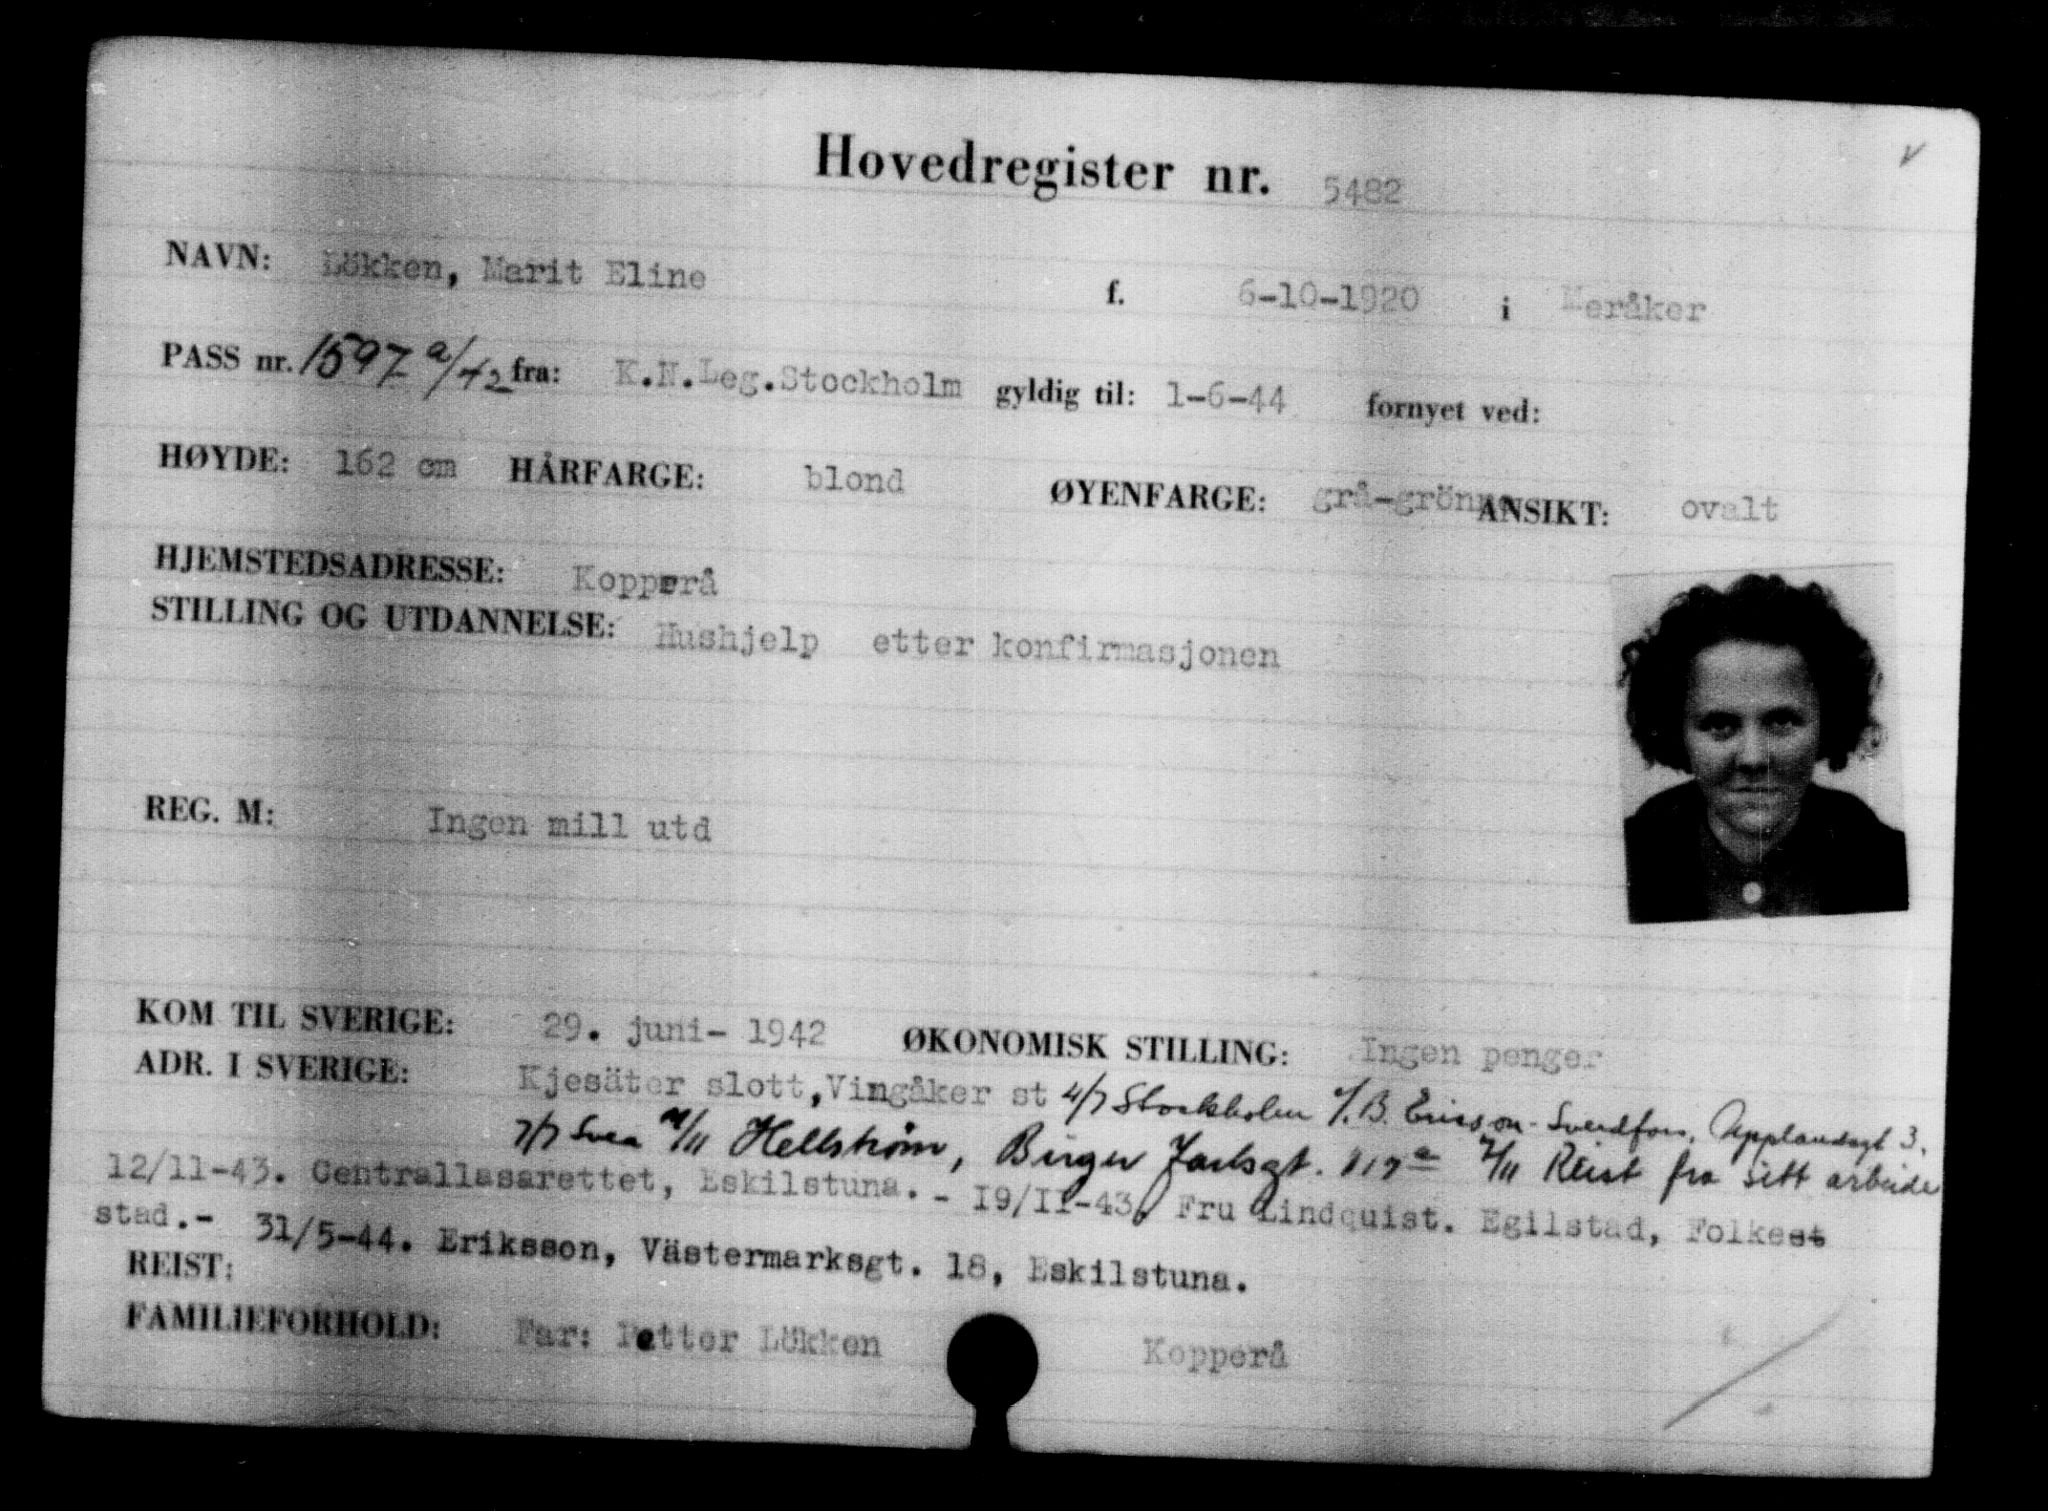 Hovedregister nr. 5482
NAVN: Lökken, Marit Eline f. 6-10-1920 i Meråker
PASS nr. 1597 a/42 fra: K.N.Leg.Stockholm gyldig til: 1-6-44 fornyet ved:
HØYDE: 162 cm HÅRFARGE: blond ØYENFARGE: grå-grönne ANSIKT: ovalt
HJEMSTEDSADRESSE: Kopperå
STILLING OG UTDANNELSE: Hushjelp etter konfirmasjonen
REG. M: Ingen mill utd
KOM TIL SVERIGE: 29. juni- 1942 ØKONOMISK STILLING: Ingen penger
ADR. I SVERIGE: Kjesäter slott, Vingåker st 4/7 Stockholm B. Ericsson-Sverdfors, Upplandsgt 3.
7/7 Svea Hellstrøm, Birger Jarlsgt. Reist fra sitt arbeide
12/11-43. Centrallasarettet, Eskilstuna. - I9/II-43. Fru Lindquist. Egilstad, Folkest
stad.- 31/5-44. Eriksson, Västermarksgt. 18, Eskilstuna.
REIST:
FAMILIEFORHOLD: Far: Petter Lökken Kopperå